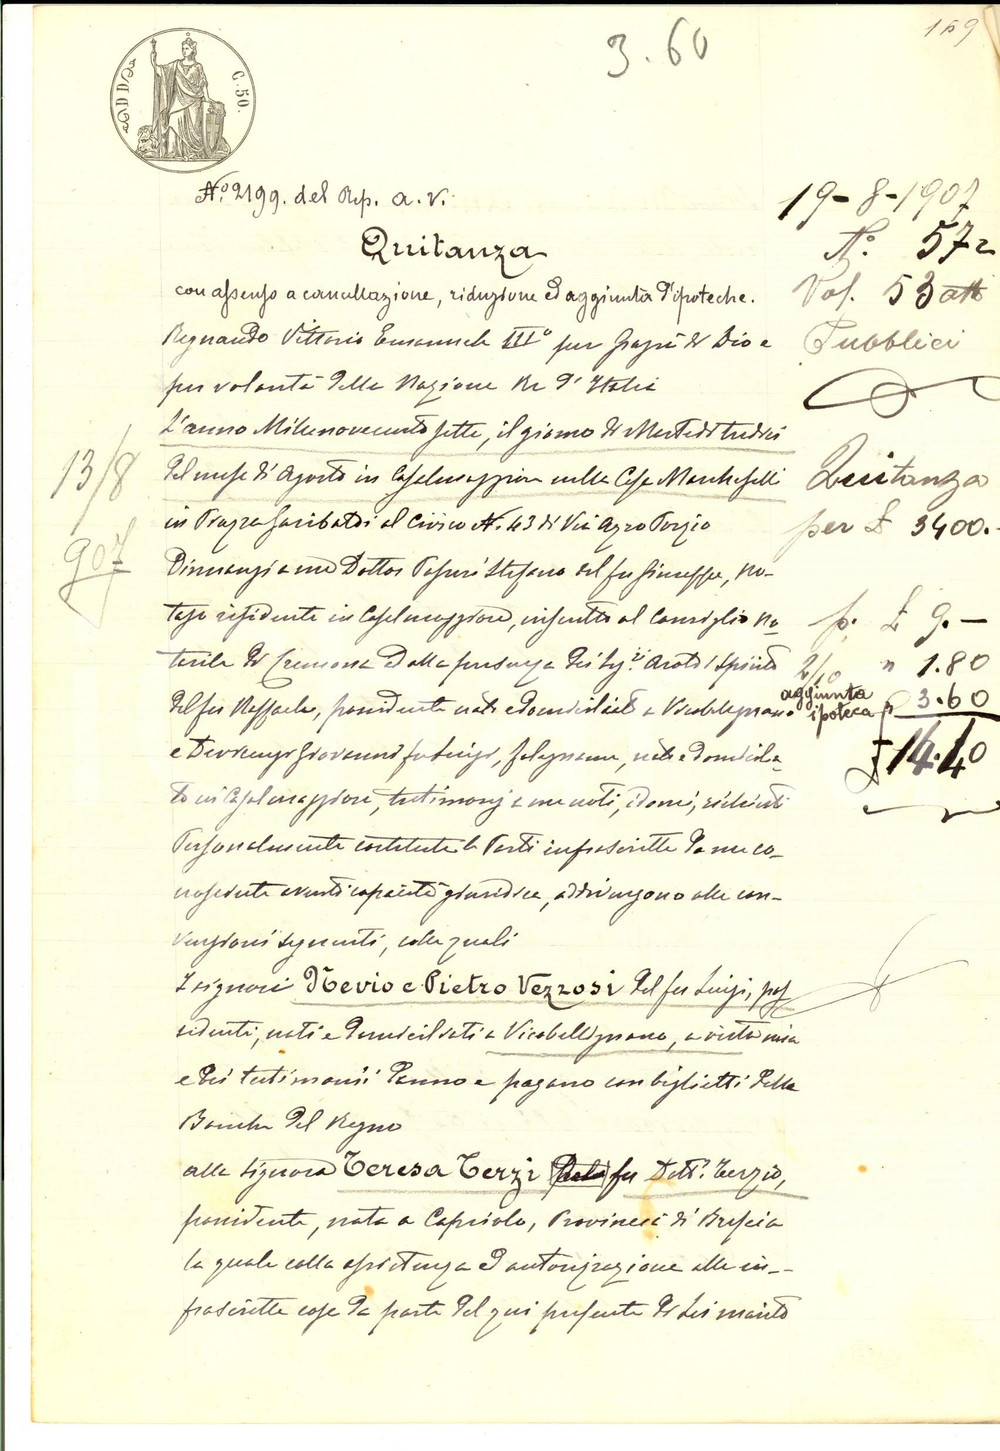 169
3.60
C. 50.
N.° 2199. del Rep. a. v.
Quitanza
con assenso a cancellazione, riduzione ed aggiunta d'ipoteche.
Regnando Vittorio Emanuele III° per grazia di Dio e
per volontà della Nazione Re d'Italia
L'anno Millenovecento sette, il giorno di Martedì tredici
del mese di Agosto in Casalmaggiore nella Casa Marcheselli
in Piazza Garibaldi al Civico N. 43 di Via Azzo Porzio
Dinnanzi a me Dottor Pasini Stefano del fu Giuseppe, No-
tajo residente in Casalmaggiore, inscritto al Consiglio No-
tarile di Cremona e dalla presenza dei Sig.ri Aroldi Spirito
del fu Raffaele, possidente nato e domiciliato a Vicobellignano
e Giovanni fu Luigi, falegname, nato e domicilia-
to in Casalmaggiore, testimonj a me noti, idonei, richiesti
Personalmente costituite le Parti infrascritte da me co-
nosciute aventi capacità giuridica, addivengono alle con-
venzioni seguenti, colle quali
I signori Nevio e Pietro Vezzosi del fu Luigi, pos-
sidenti, nati e domiciliati a Vicobellignano, a vista mia
e dei testimonii danno e pagano con biglietti della
Banca del Regno
alla signora Teresa Terzi fu Dott. Terzio,
possidente, nata a Capriolo, Provincia di Brescia
la quale colla assistenza ed autorizzazione alle in-
frascritte cose da parte del qui presente di Lei marito
13/8
907
19-8-1907
N.° 572
Vol. 53 atti
Pubblici
Quitanza
per £ 3400.-
p. £ 9.-
2/10 " 1.80
aggiunta
ipoteca 3.60
£ 14.40